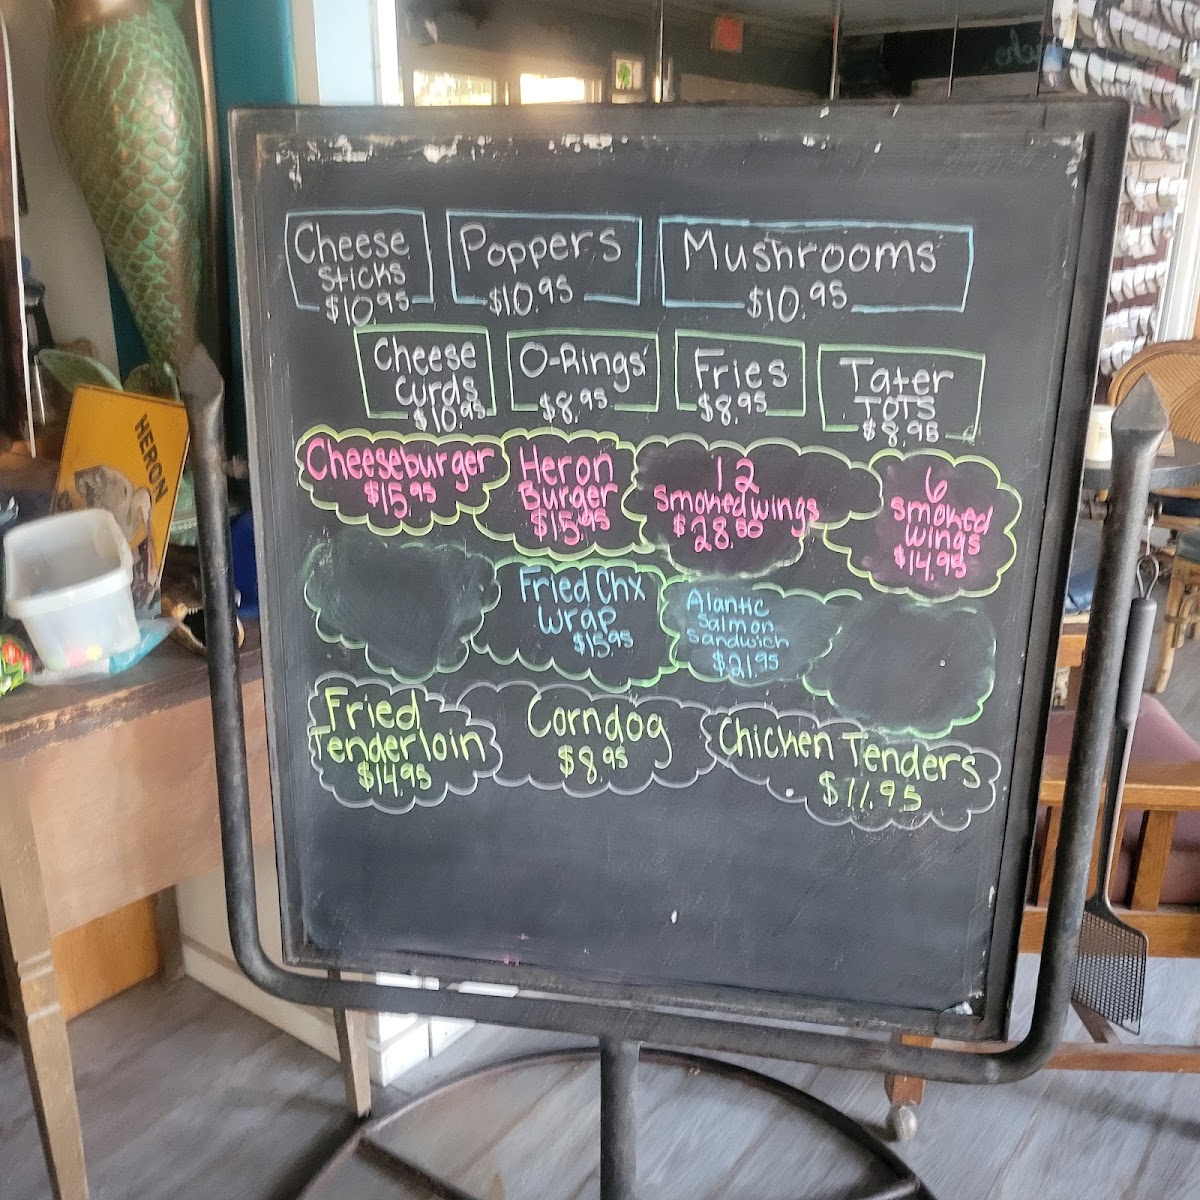 Cheese
Sticks
$10.95
Poppers
$10.95
Mushrooms
$10.95
Cheese
Curds
$10.95
O-Rings
$8.95
Fries
$8.95
Tater
Tots
$8.95
Cheeseburger
$15.95
Heron
Burger
$15.95
12
Smoked wings
$28.50
6
Smoked
wings
$14.95
Fried Chx
Wrap
$15.95
Alantic
Salmon
Sandwich
$21.95
Fried
Tenderloin
$14.95
Corndog
$8.95
Chicken Tenders
$11.95
HERON